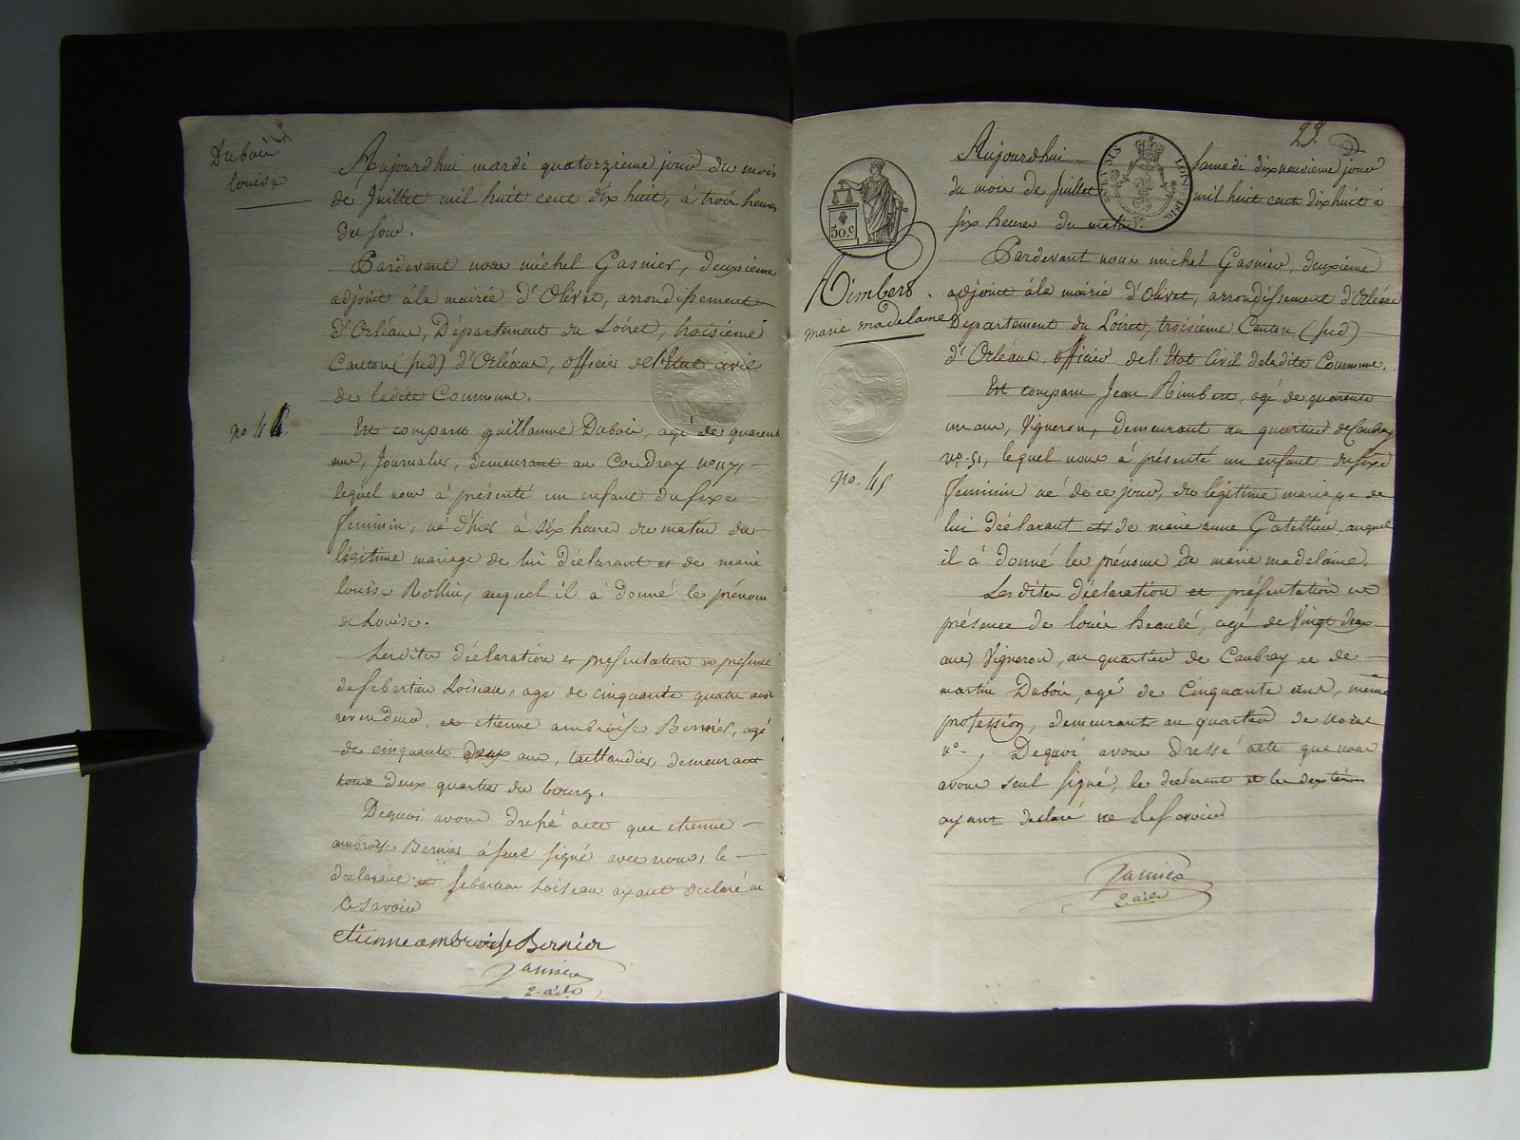 Dubois
Louise
Aujourdhui mardi quatorzieme jour du mois
de Juillet mil huit cent dix huit, à trois heures
du soir.
Pardevant nous michel Gasnier, deuxieme
adjoint à la mairie d'Olivet, arrondissement
d'Orléans, Département du Loiret, troisieme
Canton (sud) d'Orléans, officier de l'Etat civil
de ladite Commune.
no 44
Est comparu guillaume Dubois, agé de quarente
ans, Journalier, demeurant au Coudray
lequel nous à présenté un enfant du sexe
feminin, né d'hier à six heures du matin du
légitime mariage de lui déclarant et de marie
louise Rollin, auquel il à donné le prénom
de Louise.
Lesdites déclaration et présentation en presence
de sebastien Loiseau, agé de cinquante quatre ans
et etienne ambroise Bernier, agé
de cinquante deux ans, taillandier, demeurant
tous deux quartier du bourg.
Dequoi avons dressé acte que etienne
ambroise Bernier à seul signé avec nous, le
déclarant et sebastien Loiseau ayant declaré ne
le savoir
etienne ambroise Bernier
Gasnier
2. adj.
23.
50.c
Rimbert.
marie madelaine
no. 45
Aujourdhui samedi dix neuvieme jour
du mois de Juillet mil huit cent dix huit à
six heures du matin.
Pardevant nous michel Gasnier, deuxieme
adjoint à la mairie d'Olivet, arrondissement d'Orléans
Département du Loiret, troisieme Canton (sud)
d'Orléans, officier de l'Etat Civil deladite Commune.
Est comparu Jean Rimbert, agé de quarente
un ans, Vigneron, demeurant au quartier de Caubray
no. 51, lequel nous à présenté un enfant du sexe
feminin né de ce jour, du légitime mariage de
lui déclarant et de marie anne Gatellier, auquel
il à donné les prénoms de marie madelaine.
Lesdites déclaration et présentation en
présence de louis Beaulé, agé de Vingt deux
ans, Vigneron, au quartier de Caubray et de
martin Dubois, agé de Cinquante ans, même
profession, demeurant au quartier de
n°. , Dequoi avons dressé acte que nous
avons seul signé, le declarant et les deux témoins
ayant declaré ne le savoir
Gasnier
2. adj.